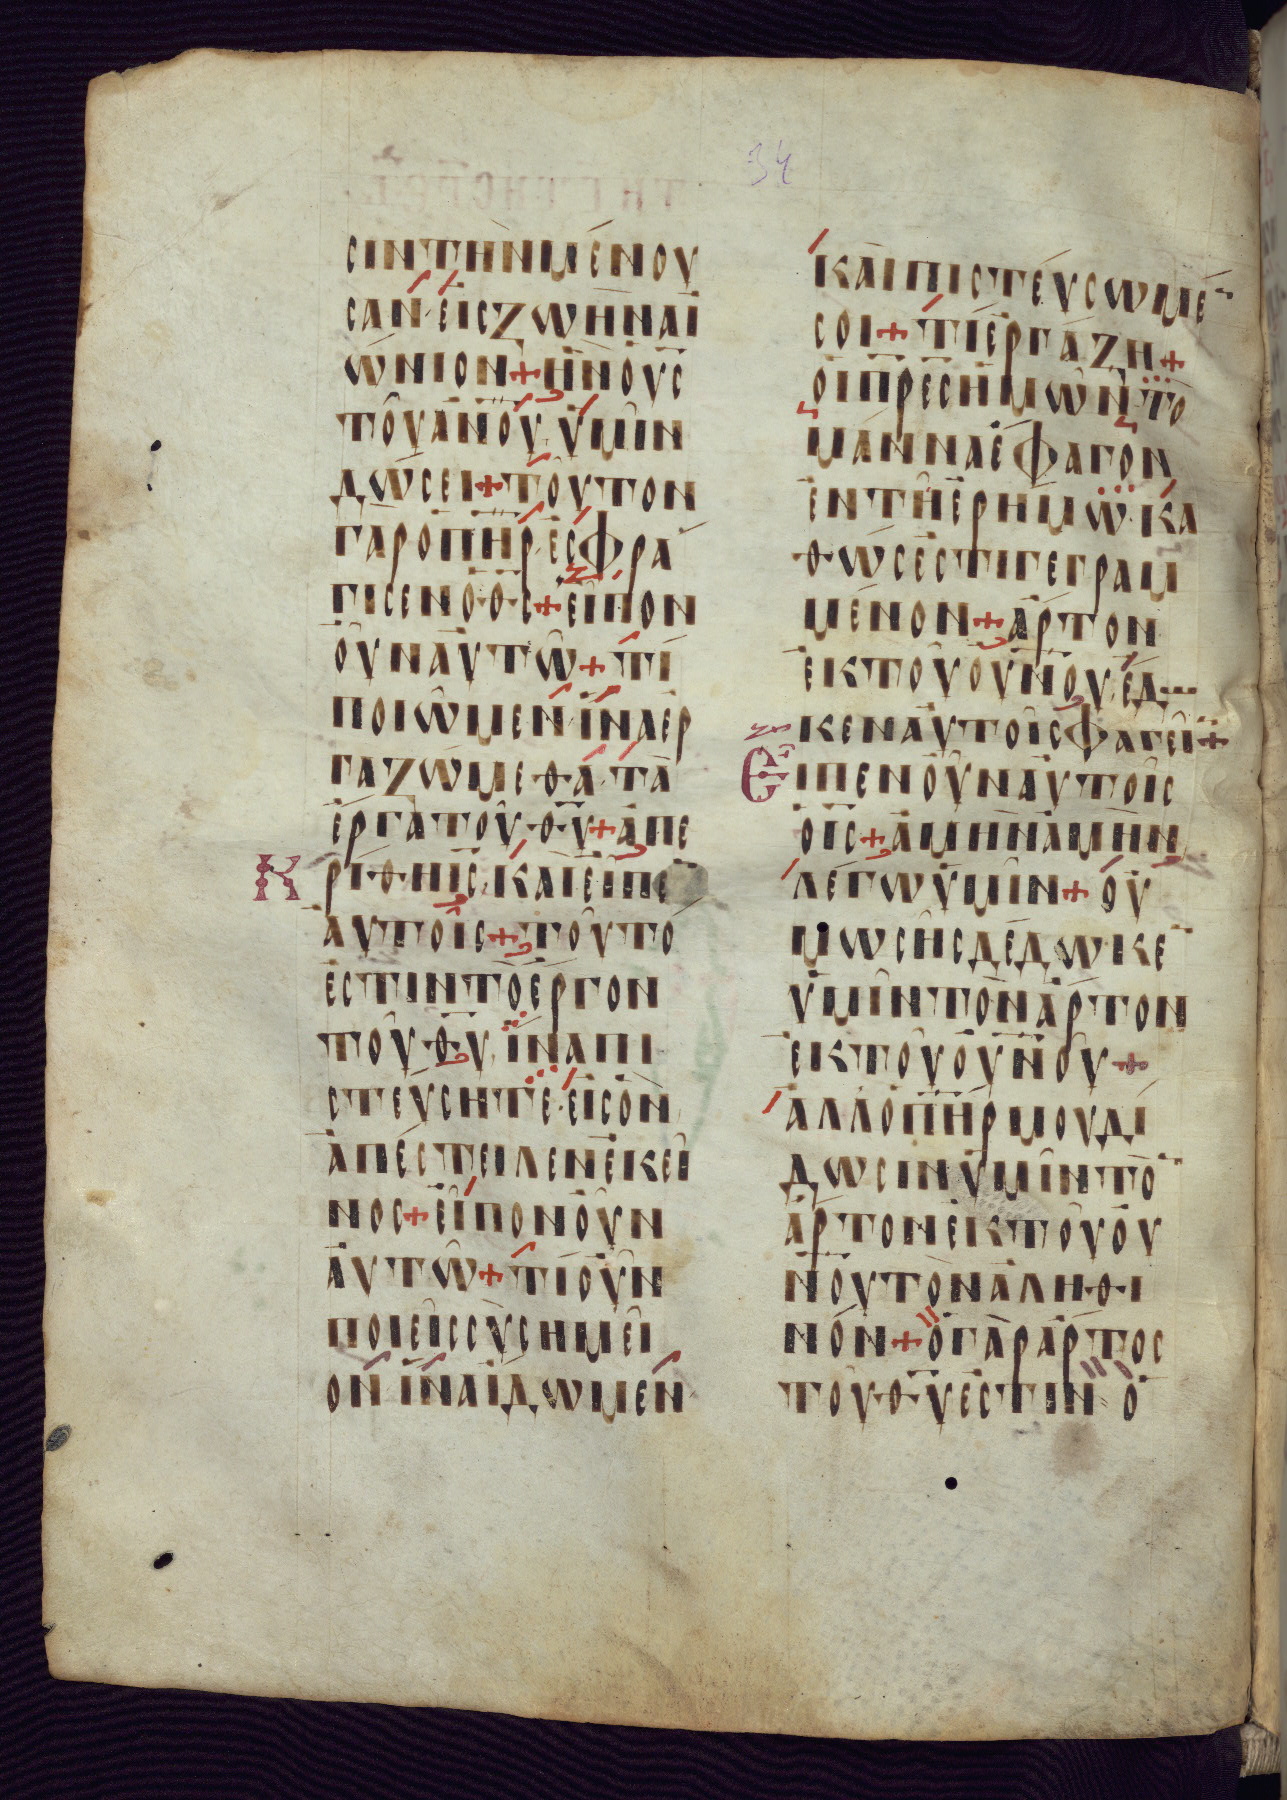 34
ϲιντὴνμένου
ϲαν·εἰϲζωὴναἰ
ώνιον+ἣνὁυϲ
τοῦανου̅,ὑμῖν
δώϲει+τοῦτον
γὰροπηρ·ἐϲφρά
γιϲενοθϲ+εἶπον
οὖναὐτῶ+τί
ποιῶμεν·ἵναερ
γαζώμεθα·τὰ
ἔργατοῦ·θυ+ἀπε
κρίθηιϲ,καὶεἶπε
αὐτοῖϲ+τοῦτό
ἐϲτιντὸἔργον
τοῦθυ,ἵναπι
ϲτεύϲητε·εἰϲὃν
ἀπέϲτειλενἐκεῖ
νοϲ+εἶπονοὖν
αὐτῶ+τίοὖν
ποιεῖϲϲὺϲημεῖ
ον·ἵναἴδωμεν
καὶπιϲτεύϲωμέ
ϲοι+τίἐργάζη+
οἱπρεϲἡμῶν·τὸ
μάνναἔφαγον
ἐντῆἐρήμω·κα
θώϲἐϲτιγεγραμ
μένον+ἄρτον
ἐκτοῦουνου,ἔδω
κεναὐτοῖϲφαγεῖν+
Εἶπενοὖναὐτοῖϲ
ὁιϲ+ἀμὴνἀμὴν
λέγωὑμῖν+οὐ
μωϲῆϲδέδωκε
ὑμῖντὸνἄρτον
ἐκτοῦουνου+
ἀλλὁπηρμουδί
δωϲινὑμῖντὸ
ἄρτονἐκτοῦου
νουτὸνἀληθι
νόν+ὁγὰρἄρτοϲ
τοῦ·θυἐϲτιν·ὁ